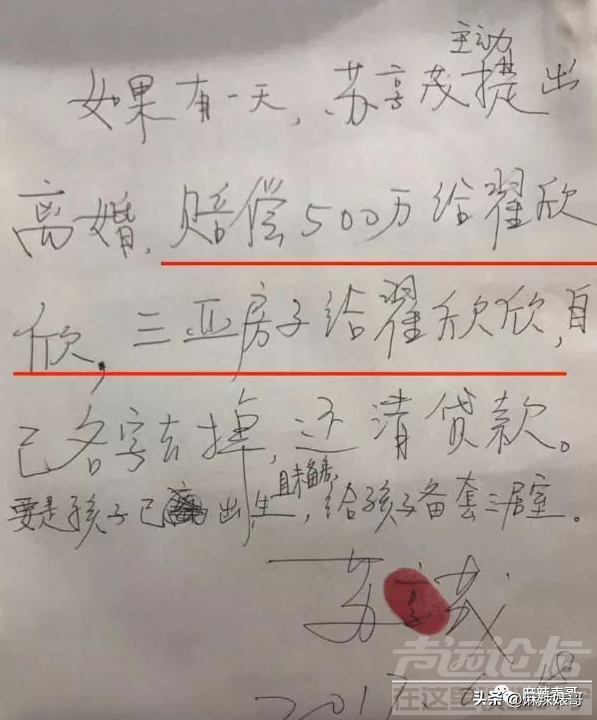 主动
如果有一天,苏享茂提出
离婚,赔偿500万给翟欣
欣,三亚房子给翟欣欣,自
己名字去掉,还清贷款。
且未备房,
要是孩子已出生,给孩子备套三居室。
苏享茂
2017.6.18
声远论坛
头条@麻辣婊哥
麻辣表哥